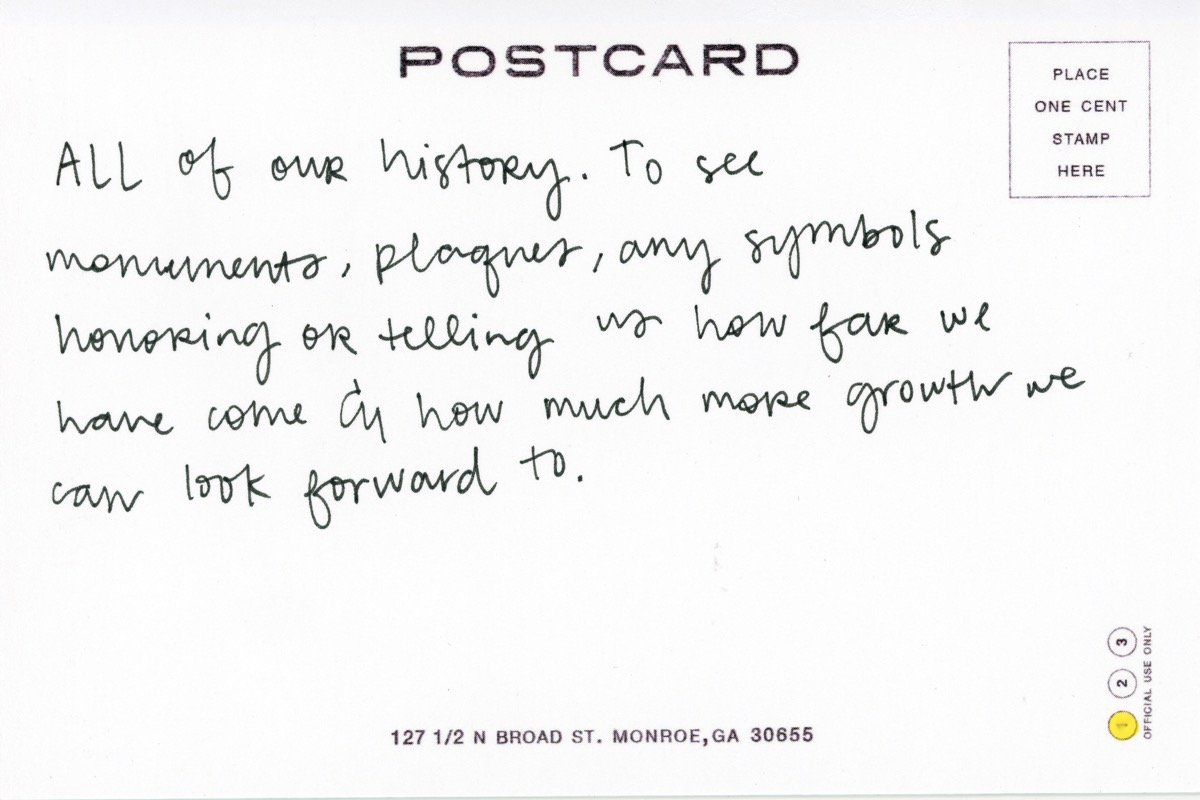 POSTCARD
PLACE
ONE CENT
STAMP
HERE
ALL of our history. To see
monuments, plaques, any symbols
honoring or telling us how far we
have come & how much more growth we
can look forward to.
1 2 3
OFFICIAL USE ONLY
127 1/2 N BROAD ST. MONROE,GA 30655